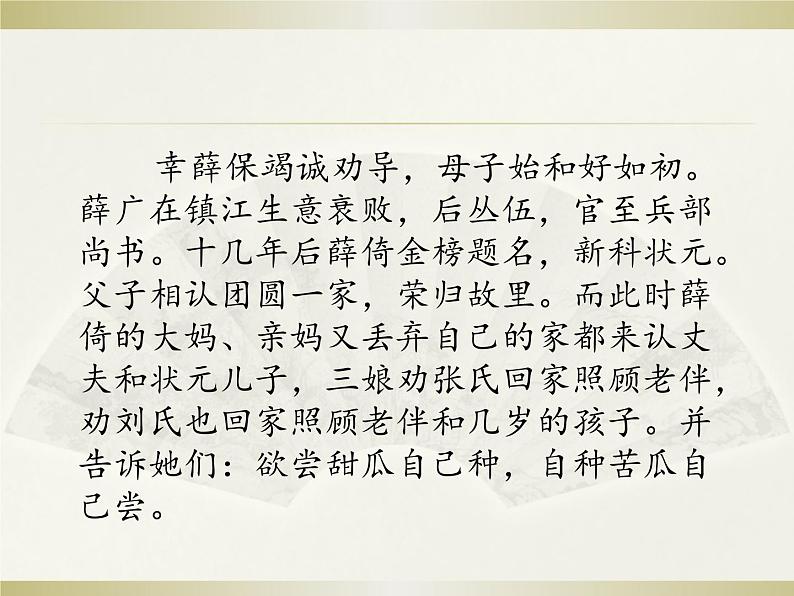 幸薛保竭诚劝导，母子始和好如初。
薛广在镇江生意衰败，后丛伍，官至兵部
尚书。十几年后薛倚金榜题名，新科状元。
父子相认团圆一家，荣归故里。而此时薛
倚的大妈、亲妈又丢弃自己的家都来认丈
夫和状元儿子，三娘劝张氏回家照顾老伴，
劝刘氏也回家照顾老伴和几岁的孩子。并
告诉她们：欲尝甜瓜自己种，自种苦瓜自
己尝。